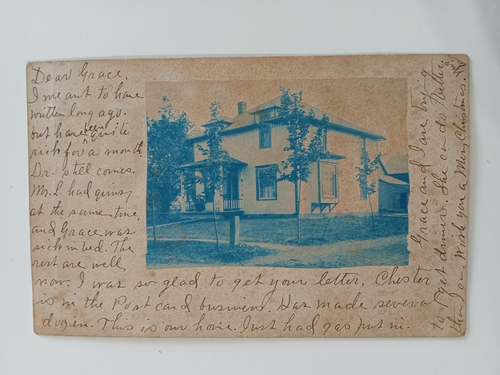 Dear Grace.
I meant to have
written long ago.
but have been quite
sick for a month
Dr. still comes.
Mr. L had quinsy
at the same time,
and Grace was
sick in bed. The
rest are well
now. I was so glad to get your letter. Chester
is in the Post card business. Has made several
dozen. This is our home. Just had gas put in.
Grace and I are trying
to get dinner. She can do better
than I can. Wish you a Merry Christmas.